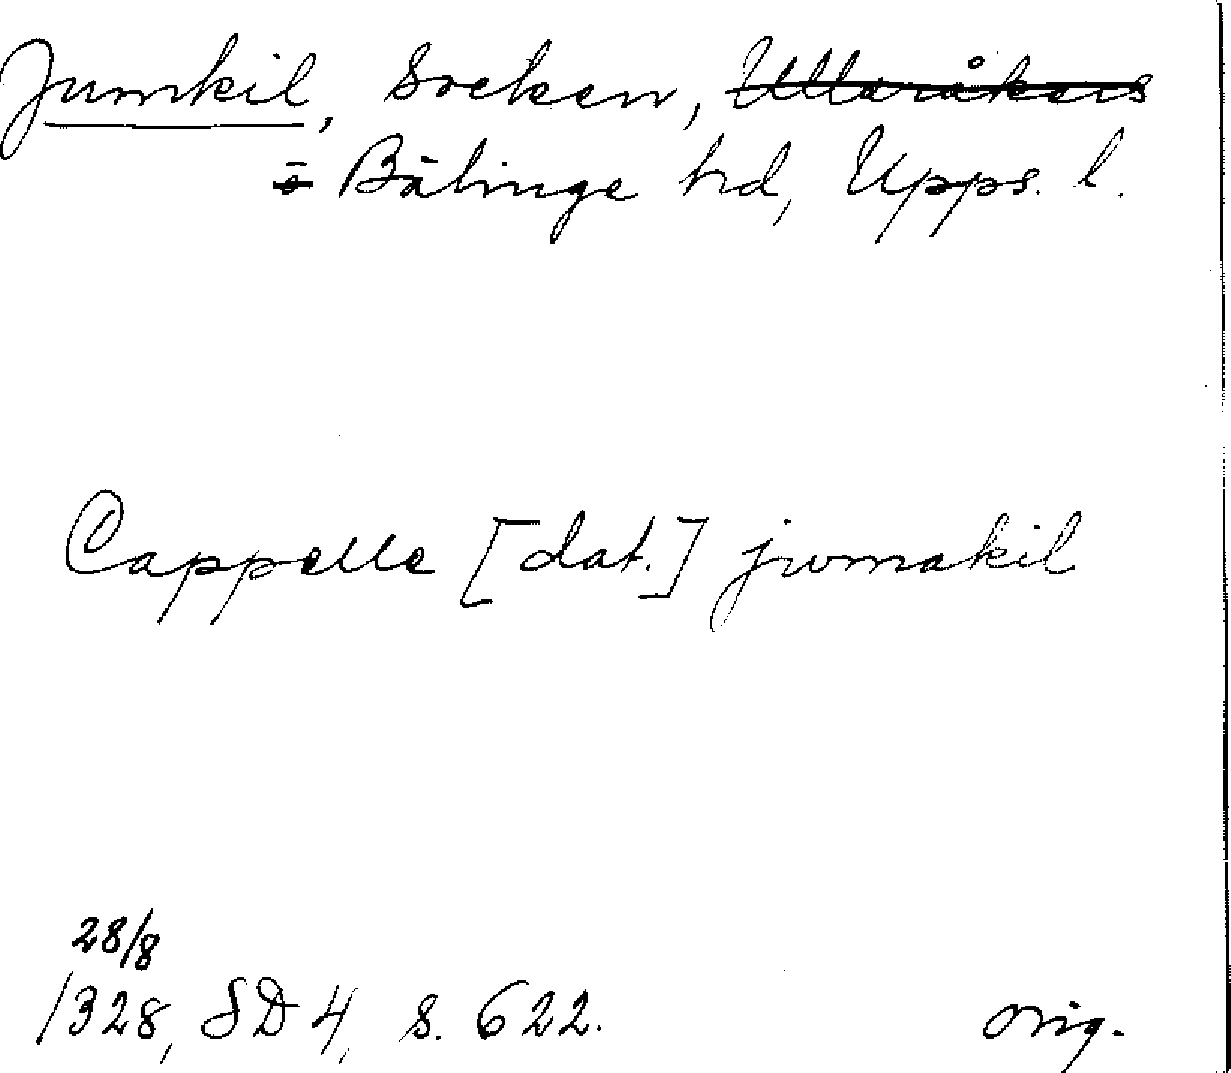 Jumkil, socken, Ulleråkers
o Bälinge hd, Upps. l.
Cappelle [dat.] jwmakil
28/8
1328, SD 4, s. 622. orig.